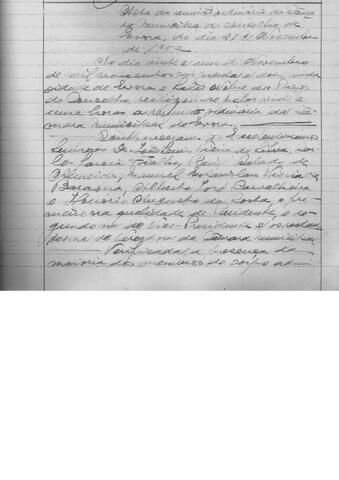 Acta da reunião ordinária da Câma-
ra Municipal do concelho de
Evora, do dia 21 de Novembro
de 1952
No dia vinte e um de Novembro
de mil novecentos cincoenta e dois, nesta
cidade de Evora e Sala Nobre dos Paços
do Concelho realizou-se pelas vinte e
uma horas a reunião ordinária da Câ-
mara Municipal de Evora.
Compareceram os Excelentíssimos
Senhores Dr. Luis Vieira da Silva,
Garcia Fialho, Raul Salado de
Oliveira, Manuel Vieira
Baraona, Gilberto José Carvalheira
e Honório Augusto da Costa, o pri-
meiro na qualidade de Presidente, o se-
gundo na de Vice-Presidente e os restantes
na de Vereadores da Câmara Municipal.
Verificada a presença da
maioria dos membros do corpo admi-